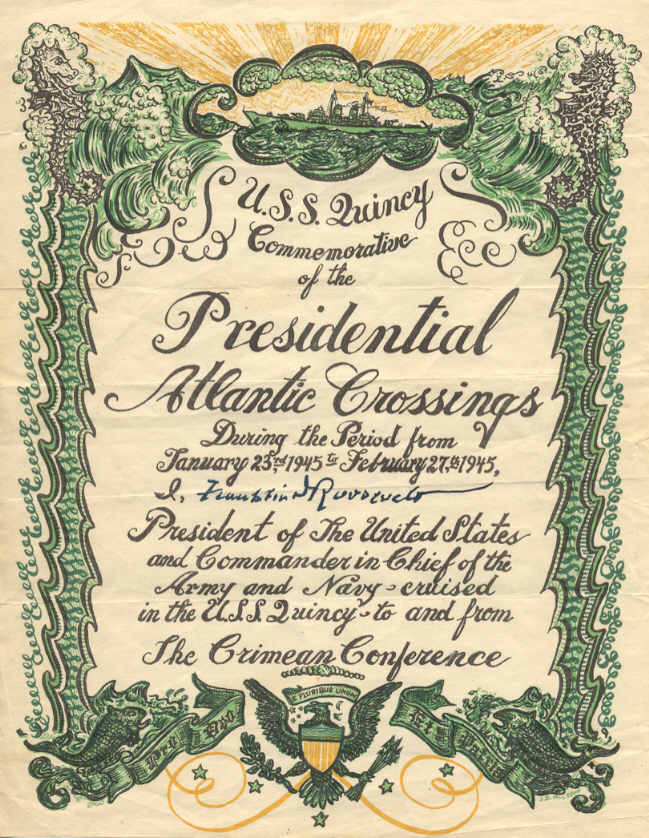 U.S.S. Quincy
Commemorative
of the
Presidential
Atlantic Crossings
During the Period from
January 23rd, 1945 to February 27th, 1945,
I, Franklin D Roosevelt
President of The United States
and Commander in Chief of the
Army and Navy - cruised
in the U.S.S. Quincy - to and from
The Crimean Conference
E PLURIBUS UNUM
Pro Deo
Et